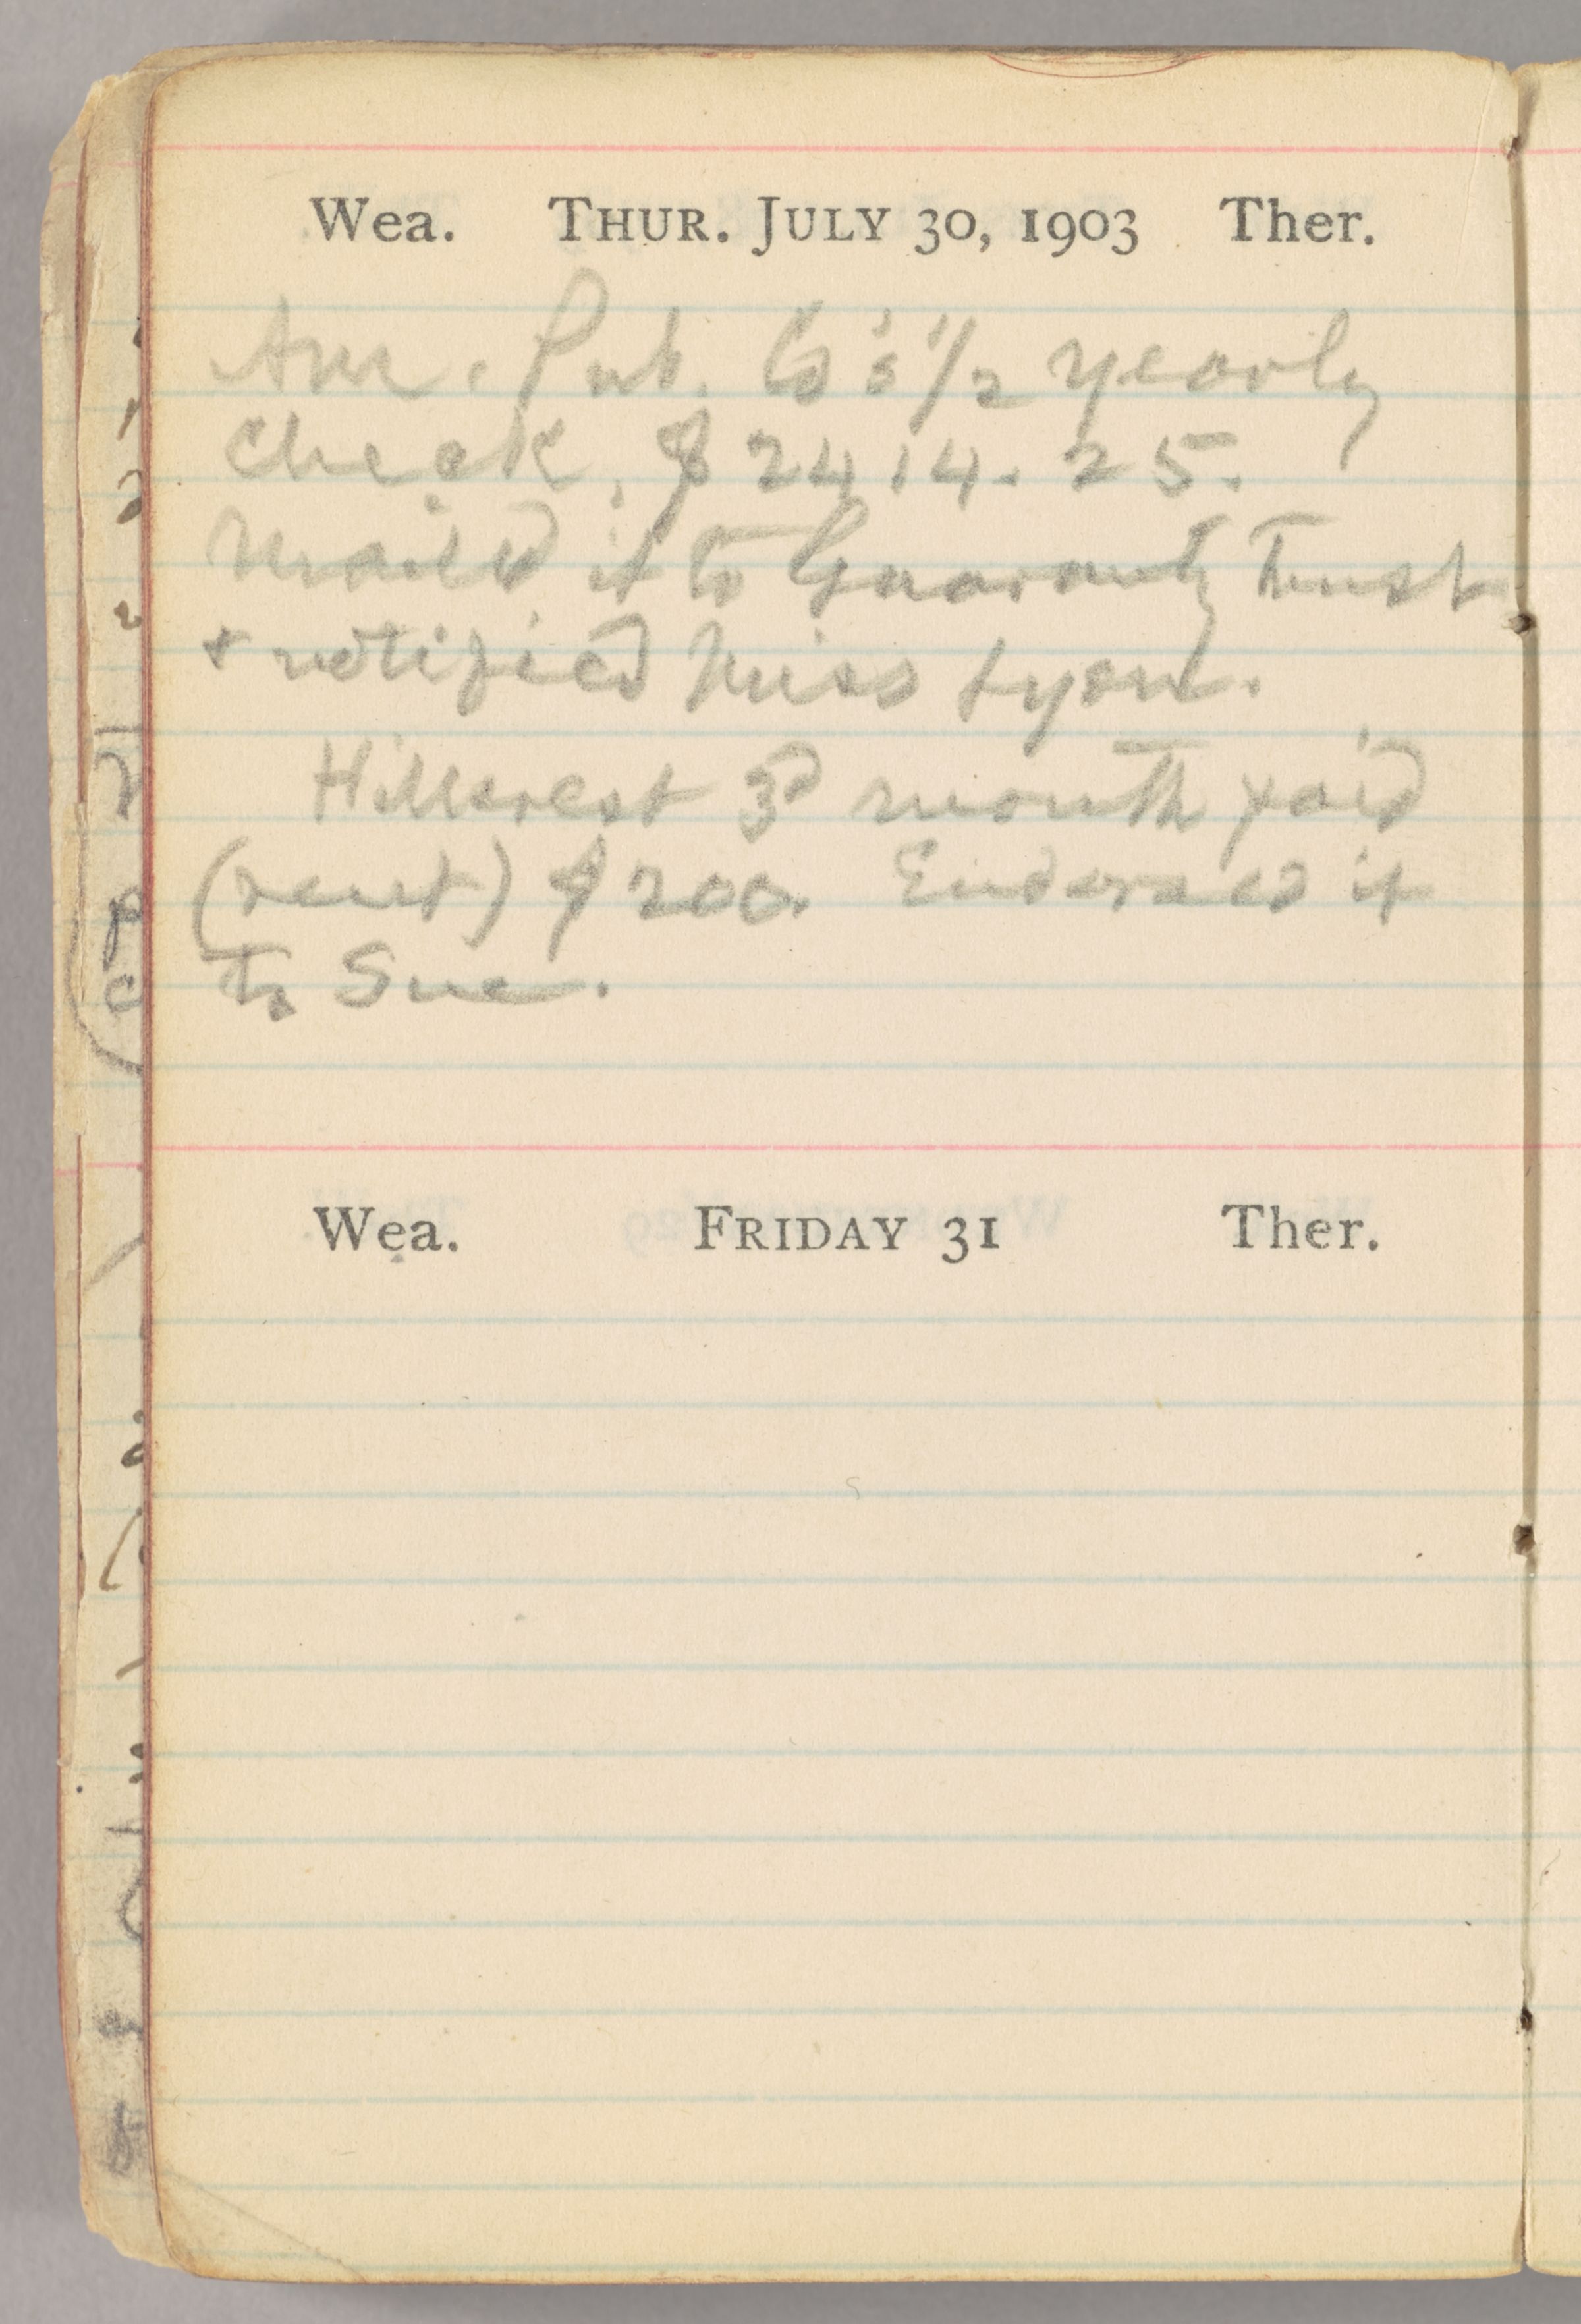 Wea. THUR. JULY 30, 1903 Ther.
Am. Pub. Co's 1/2 yearly
check, $2414.25.
Mailed it to Guaranty Trust
+ notified Miss Lyon.
Hillcrest 3d month paid
(rent) $200. Endorsed it
to Sue.
Wea. FRIDAY 31 Ther.